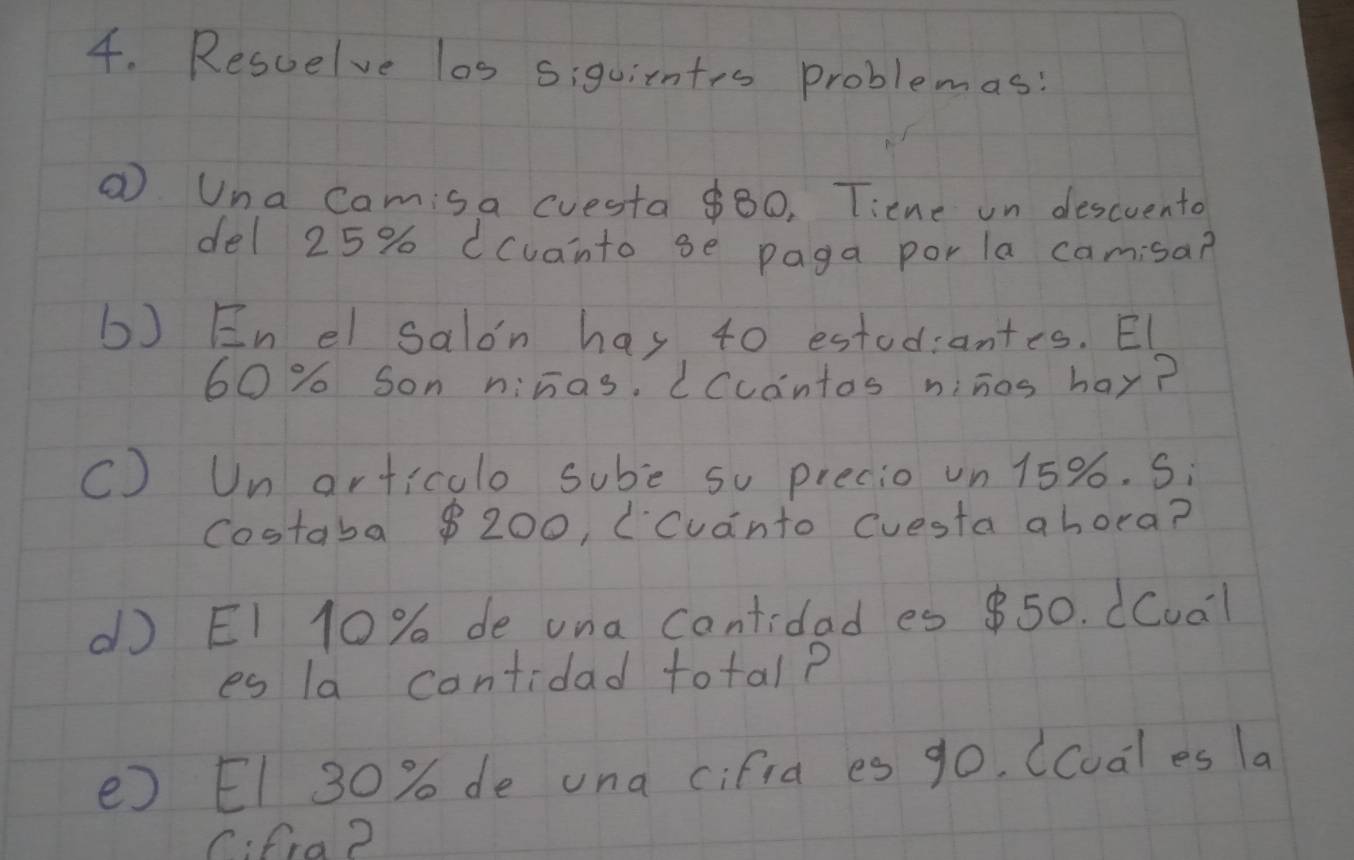 4. Resuelve los siguientes problemas:
a) Una camisa cuesta $80. Tiene un descuento
del 25% ¿cuánto se paga por la camisa?
b) En el salón hay 40 estudiantes. El
60% son niñas. ¿Cuántos niños hay?
c) Un artículo sube su precio un 15%. Si
costaba $200, ¿Cuánto cuesta ahora?
d) El 10% de una cantidad es $50. ¿Cuál
es la cantidad total?
e) El 30% de una cifra es 90. ¿Cuál es la
cifra?